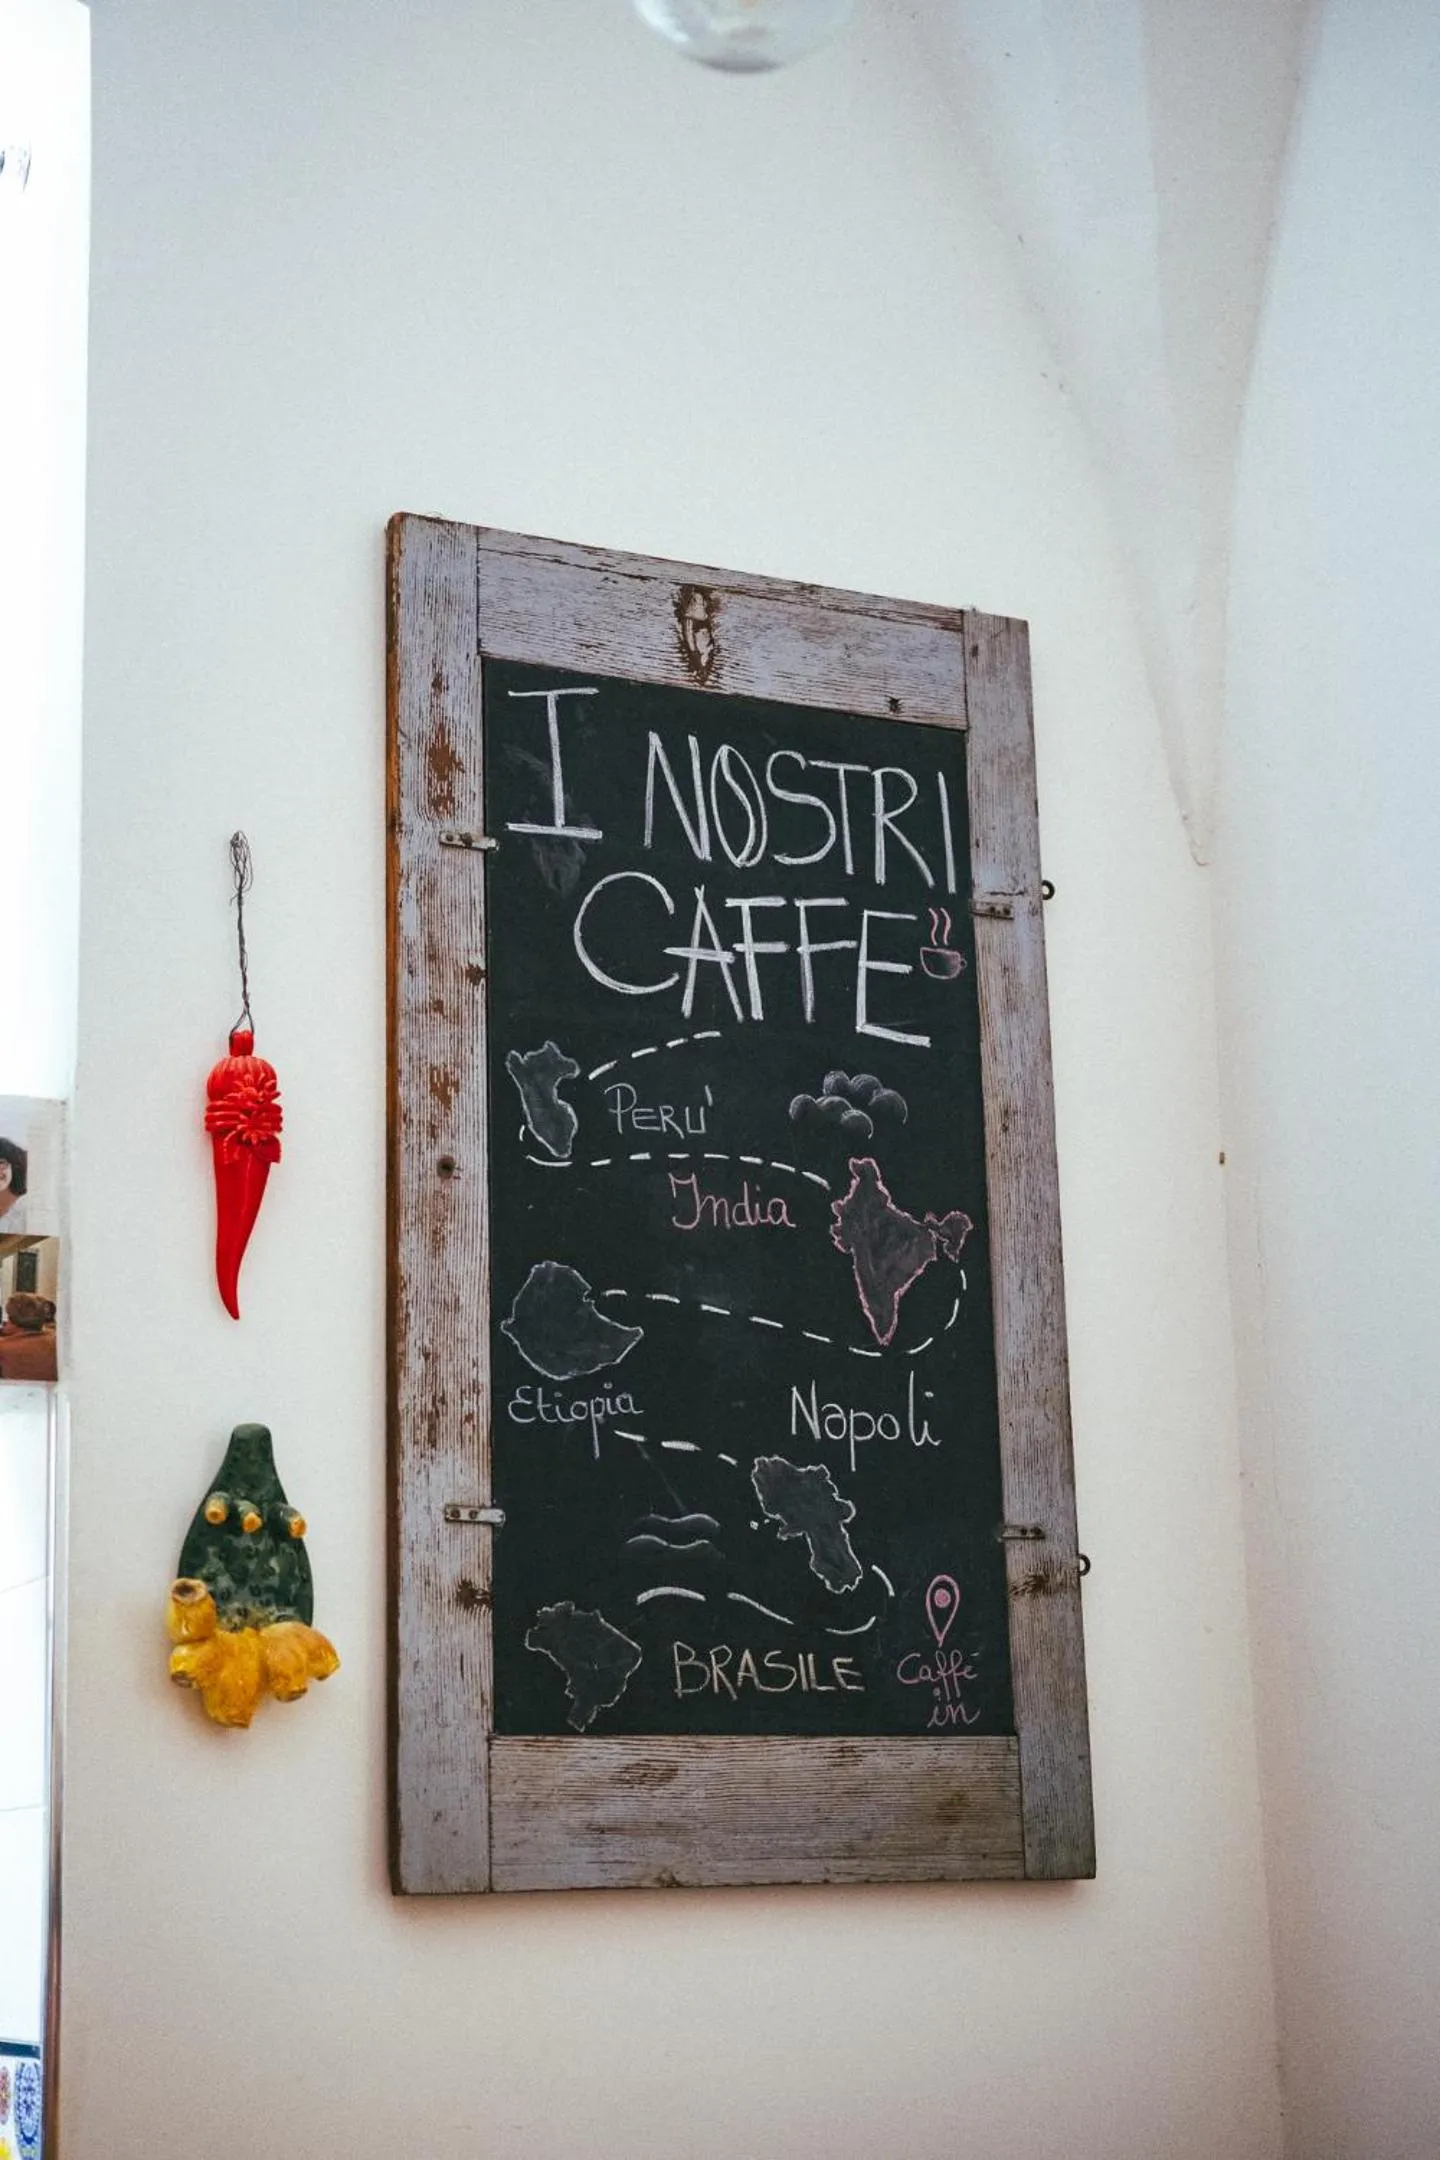 I NOSTRI
CAFFE
PERU'
India
Etiopia
Napoli
BRASILE
Caffè
in